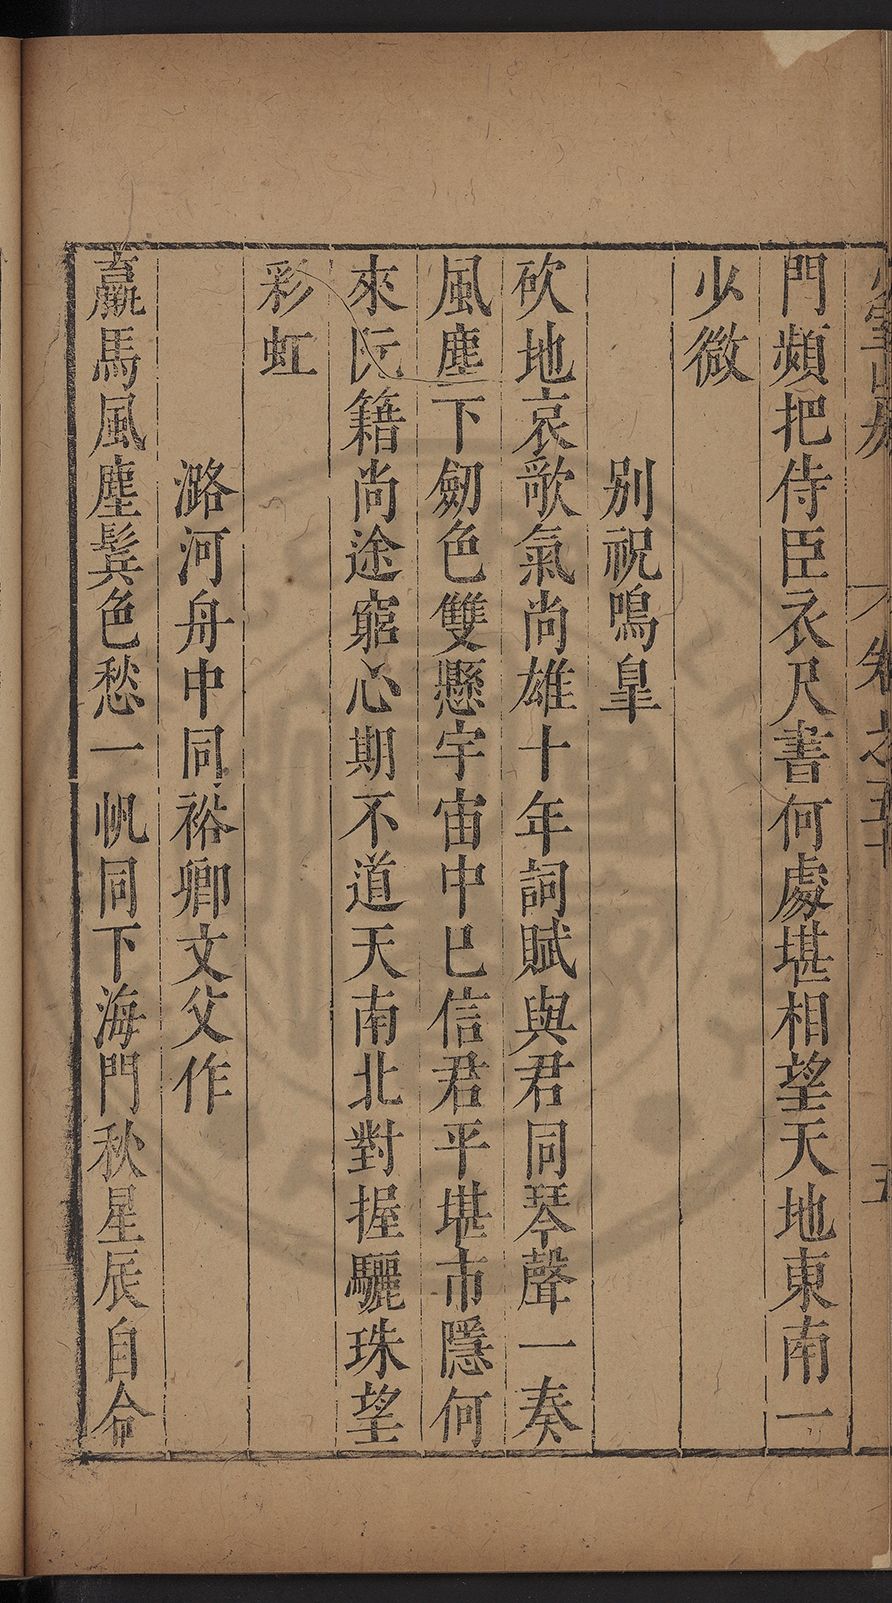 卷之五十
五
門頻把侍臣衣尺書何處堪相望天地東南一
少微
別祝鳴皐
斫地哀歌氣尚雄十年詞賦與君同琴聲一奏
風塵下劒色雙懸宇宙中巳信君平堪市隱何
來阮籍尚途窮心期不道天南北對握驪珠望
彩虹
潞河舟中同裕卿文父作
羸馬風塵鬓色愁一帆同下海門秋星辰自合